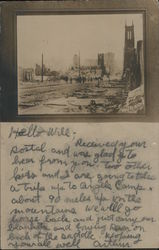 Hello Will:-
Received your
postal and was glad to
hear from you. two other
boys and I are going to take
a trip up to Angels Camp.
about 90 miles up in the
mountains. we will go
horse back and just carry our
blankets and
back of the saddle. Hoping
you are all well Arthur